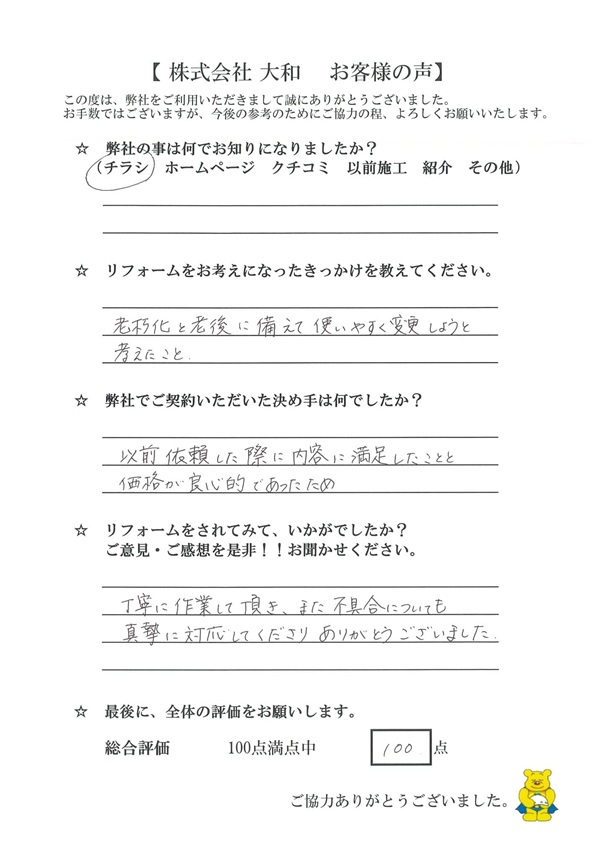 【 株式会社 大和　お客様の声】
この度は、弊社をご利用いただきまして誠にありがとうございました。
お手数ではございますが、今後の参考のためにご協力の程、よろしくお願いいたします。
☆　弊社の事は何でお知りになりましたか？
（チラシ　ホームページ　クチコミ　以前施工　紹介　その他）
☆　リフォームをお考えになったきっかけを教えてください。
老朽化と老後に備えて使いやすく変更しようと
考えたこと.
☆　弊社でご契約いただいた決め手は何でしたか？
以前依頼した際に内容に満足したことと
価格が良心的であったため
☆　リフォームをされてみて、いかがでしたか？
ご意見・ご感想を是非！！お聞かせください。
丁寧に作業して頂き、また不具合についても
真摯に対応してくださりありがとうございました.
☆　最後に、全体の評価をお願いします。
総合評価　100点満点中　100　点
ご協力ありがとうございました。